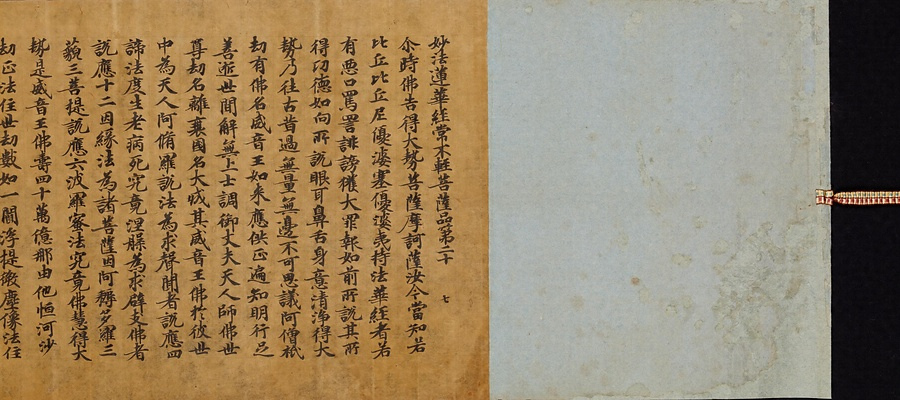 妙法蓮華経常不軽菩薩品第二十　七
尒時佛告得大勢菩薩摩訶薩汝今當知若
比丘比丘尼優婆塞優婆夷持法華経者若
有悪口罵詈誹謗獲大罪報如前所說其所
得功德如向所說眼耳鼻舌身意清淨得大
勢乃往古昔過無量無邊不可思議阿僧祇
劫有佛名威音王如来應供正遍知明行足
善逝世間解無上士調御丈夫天人師佛世
尊劫名離衰國名大成其威音王佛於彼世
中為天人阿脩羅說法為求聲聞者說應四
諦法度生老病死究竟涅槃為求辟支佛者
說應十二因緣法為諸菩薩因阿耨多羅三
藐三菩提說應六波羅蜜法究竟佛慧得大
勢是威音王佛壽四十萬億那由他恒河沙
劫正法住世劫數如一閻浮提微塵像法住